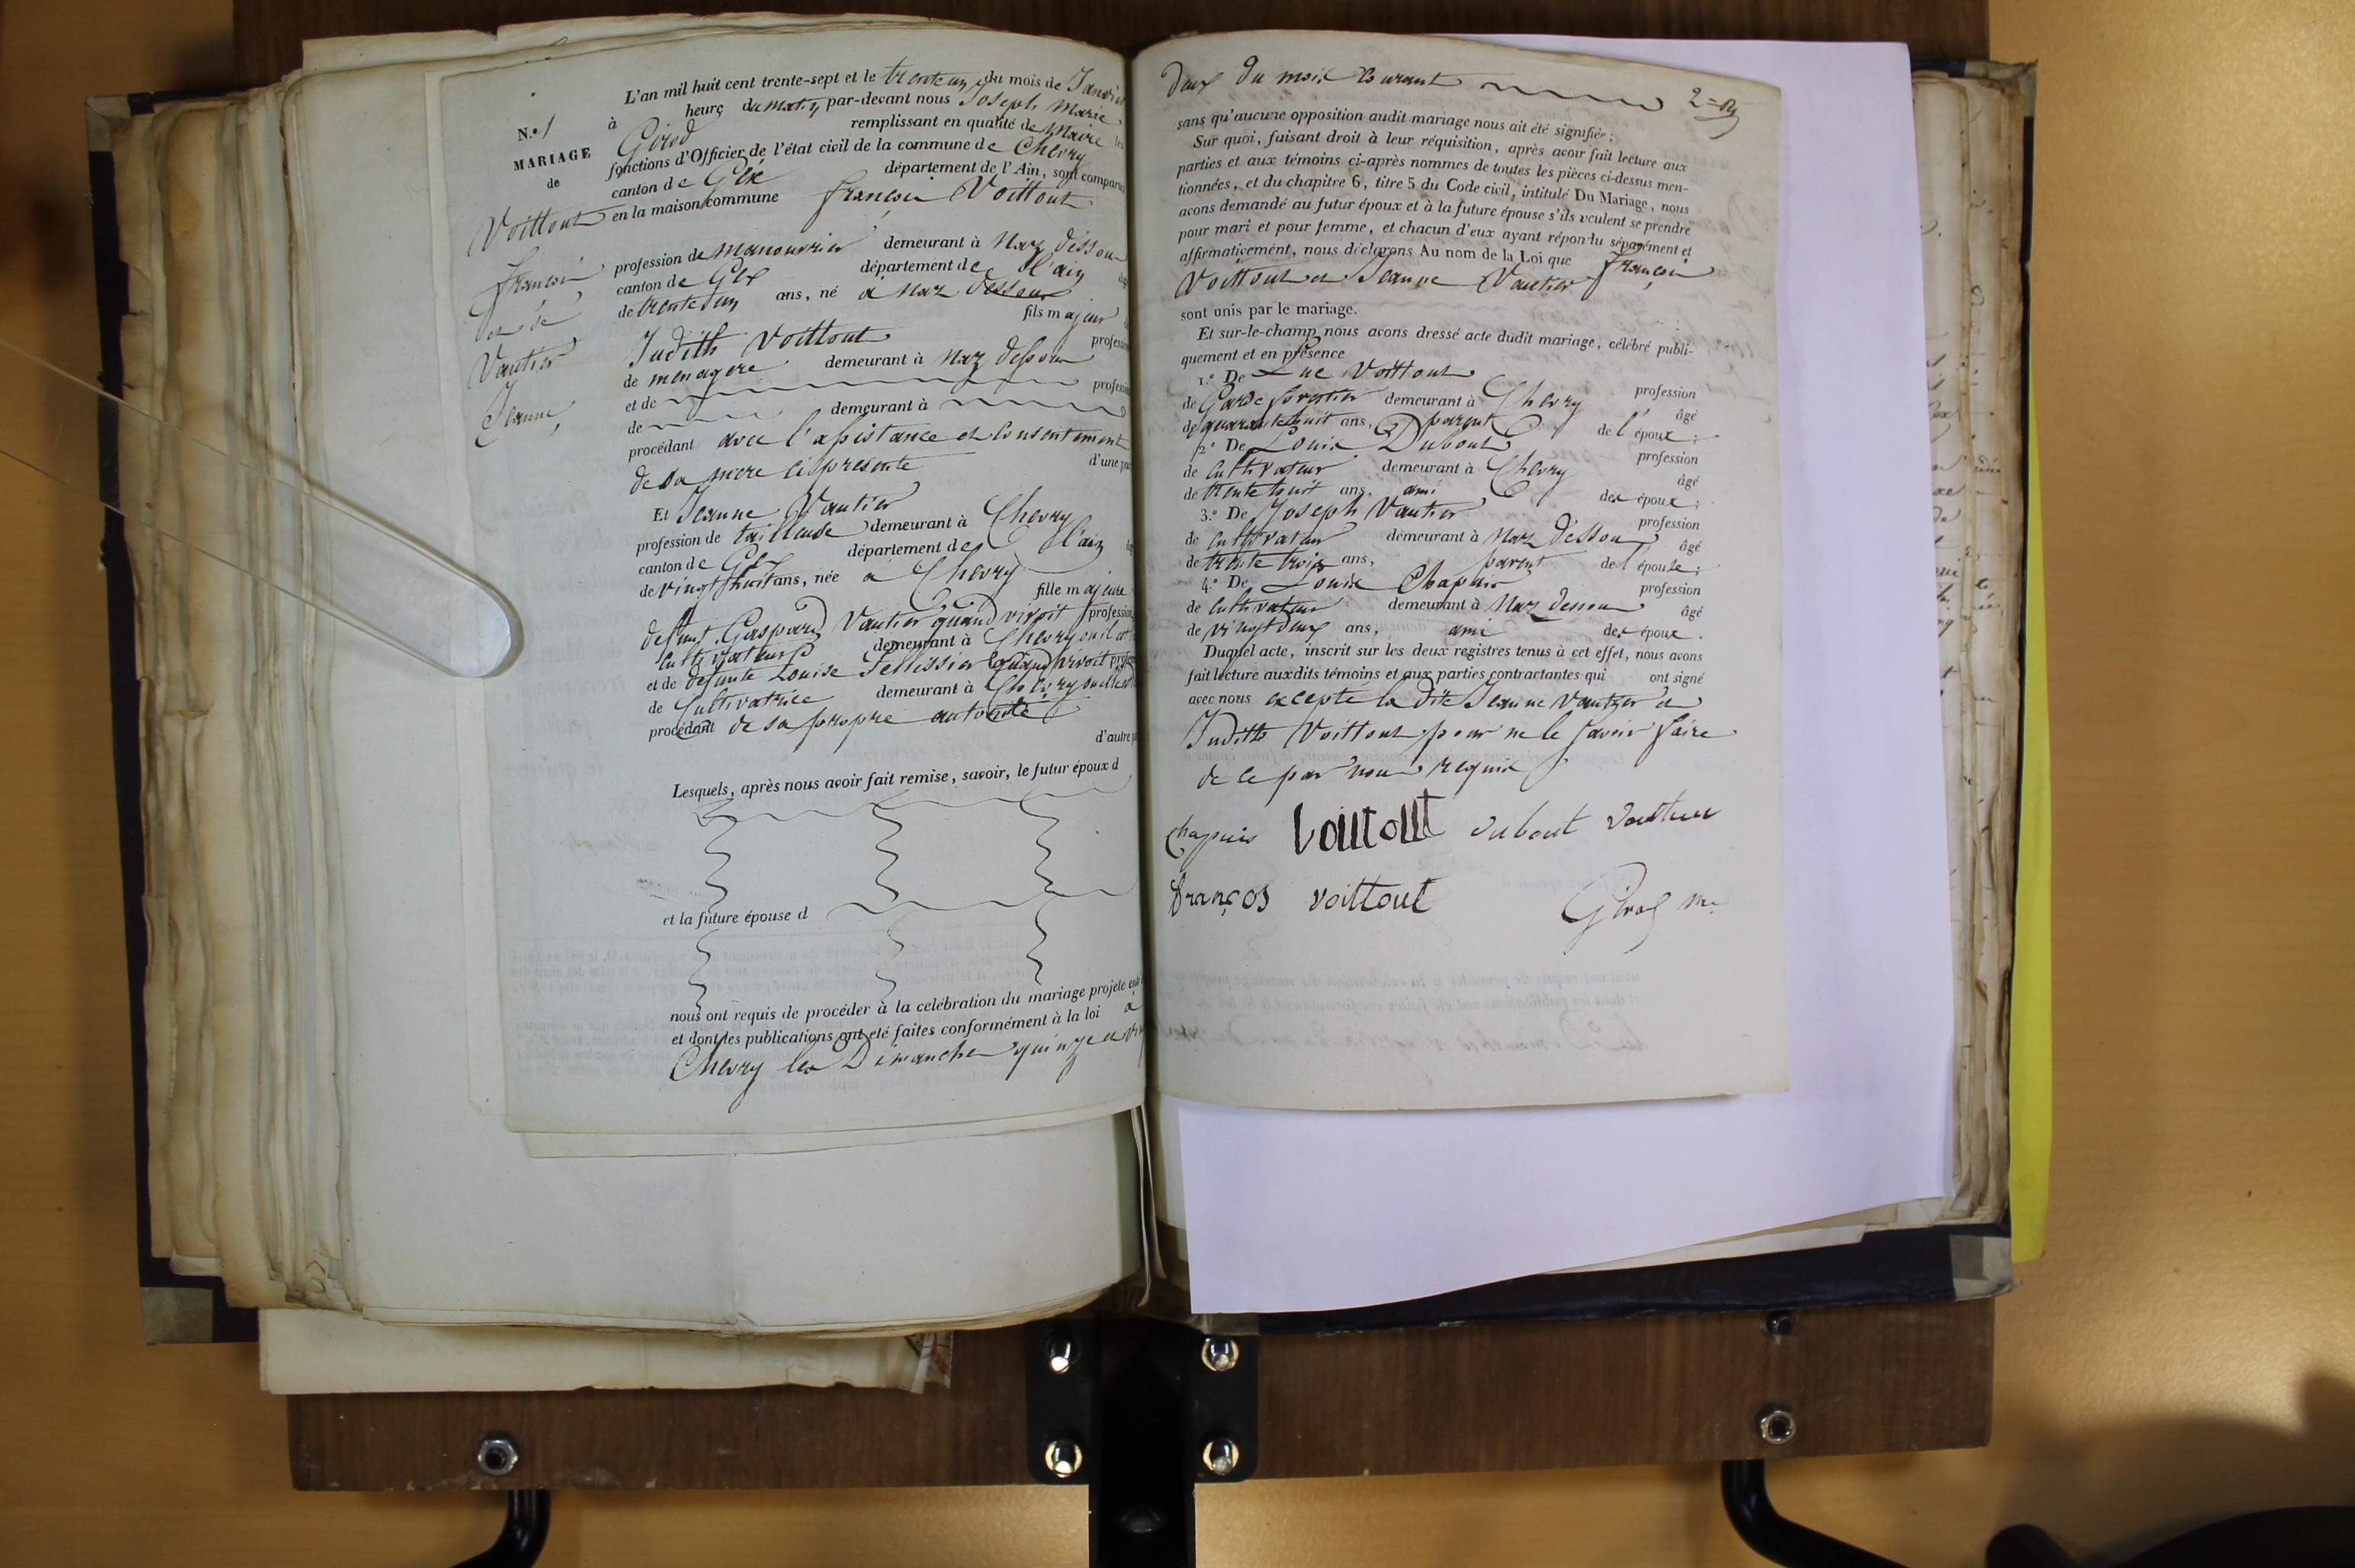 N.o 1
MARIAGE
de
Voittout
françois
et de
Vautier
Jeanne
L'an mil huit cent trente-sept et le trente un du mois de Janvier
à heure du matin par-devant nous Joseph Marie
Girod remplissant en qualité de Maire
fonctions d'Officier de l'état civil de la commune de Chevry
canton de Gex département de l'Ain, sont comparus
en la maison commune françois Voittout
profession de manouvrier demeurant à Naz dessous
canton de Gex département de l'ain
de trente un ans, né à Naz dessous
fils majeur
Judith Voittout profession
de menagere demeurant à Naz dessous
et de profession
de demeurant à
procédant avec l'assistance et consentement
de sa mere ci presente d'une part
Et Jeanne Vautier
profession de tailleuse demeurant à Chevry
canton de Gex département de l'ain
de vingt huit ans, née à Chevry
fille majeure
defunt Gaspard Vautier quand vivoit profession
cultivateur demeurant à Chevry ou il est
et de defunte Louise Pellissier quand vivoit profession
de Cultivatrice demeurant à Chevry ou elle est
procédant de sa propre autorité
d'autre part
Lesquels, après nous avoir fait remise, savoir, le futur époux d
et la future épouse d
nous ont requis de procéder à la celébration du mariage projeté entre
et dont les publications ont été faites conformément à la loi à
Chevry les Dimanches quinze et vingt
deux du mois courant 2=
sans qu'aucune opposition audit mariage nous ait été signifiée ;
Sur quoi, faisant droit à leur réquisition, après avoir fait lecture aux
parties et aux témoins ci-après nommes de toutes les pièces ci-dessus men-
tionnées, et du chapitre 6, titre 5 du Code civil, intitulé Du Mariage, nous
avons demandé au futur époux et à la future épouse s'ils veulent se prendre
pour mari et pour femme, et chacun d'eux ayant répondu séparément et
affirmativement, nous déclarons Au nom de la Loi que françois
Voittout et Jeanne Vautier
sont unis par le mariage.
Et sur-le-champ nous avons dressé acte dudit mariage, célébré publi-
quement et en présence
1.o De Luc Voittout profession
de Garde forestier demeurant à Chevry âgé
de quarante huit ans, parent de l'époux ;
2.o De Louis Dubout profession
de cultivateur demeurant à Chevry âgé
de trente huit ans, ami des époux ;
3.o De Joseph Vautier profession
de cultivateur demeurant à Naz dessous âgé
de trente trois ans, parent de l'épouse ;
4.o De Louis Chapuis profession
de cultivateur demeurant à Naz dessous âgé
de vingt deux ans, ami des époux.
Duquel acte, inscrit sur les deux registres tenus à cet effet, nous avons
fait lecture auxdits témoins et aux parties contractantes qui ont signé
avec nous excepté la dite Jeanne Vautier et
Judith Voittout pour ne le savoir faire
de ce par nous requis
Chapuis Voittout dubout
françois voittout Girod